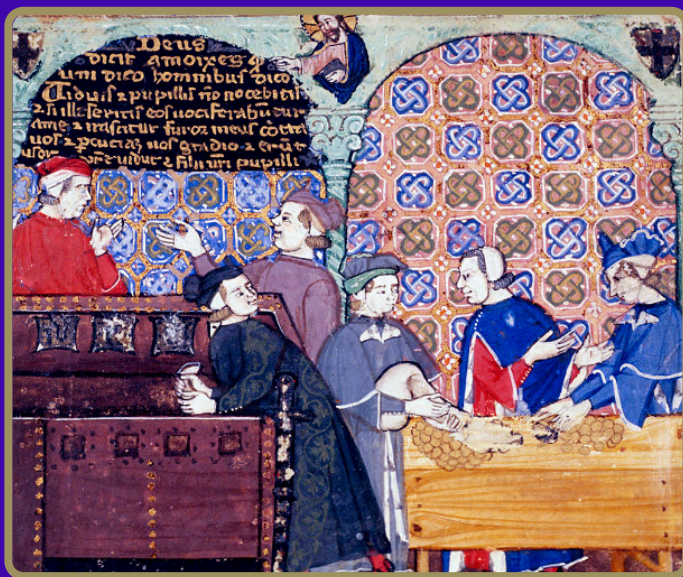 Deus
dicit amoixes q
uni dico hominibus dico
Uiduis ⁊ pupillis nõ nocebitis
⁊ si illeseritis eos uociferabũ
ame ⁊ irascetur furor meus cõtra
uos ⁊ uos gladio ⁊ erũt
uidue ⁊ filii uri pupilli